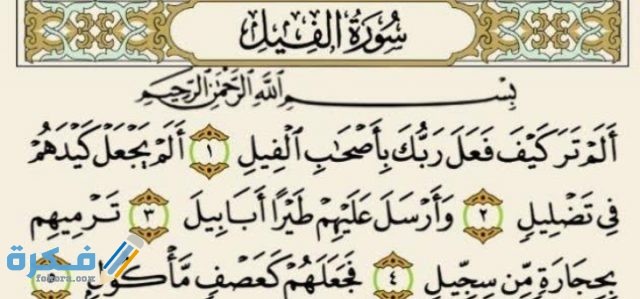 سُورَةُ الفِيلِ
بِسْمِ اللَّهِ الرَّحْمَٰنِ الرَّحِيمِ
أَلَمْ تَرَ كَيْفَ فَعَلَ رَبُّكَ بِأَصْحَابِ الْفِيلِ ١ أَلَمْ يَجْعَلْ كَيْدَهُمْ
فِي تَضْلِيلٍ ٢ وَأَرْسَلَ عَلَيْهِمْ طَيْرًا أَبَابِيلَ ٣ تَرْمِيهِم
بِحِجَارَةٍ مِّن سِجِّيلٍ ٤ فَجَعَلَهُمْ كَعَصْفٍ مَّأْكُولٍ ٥
فكرة
fekera.com